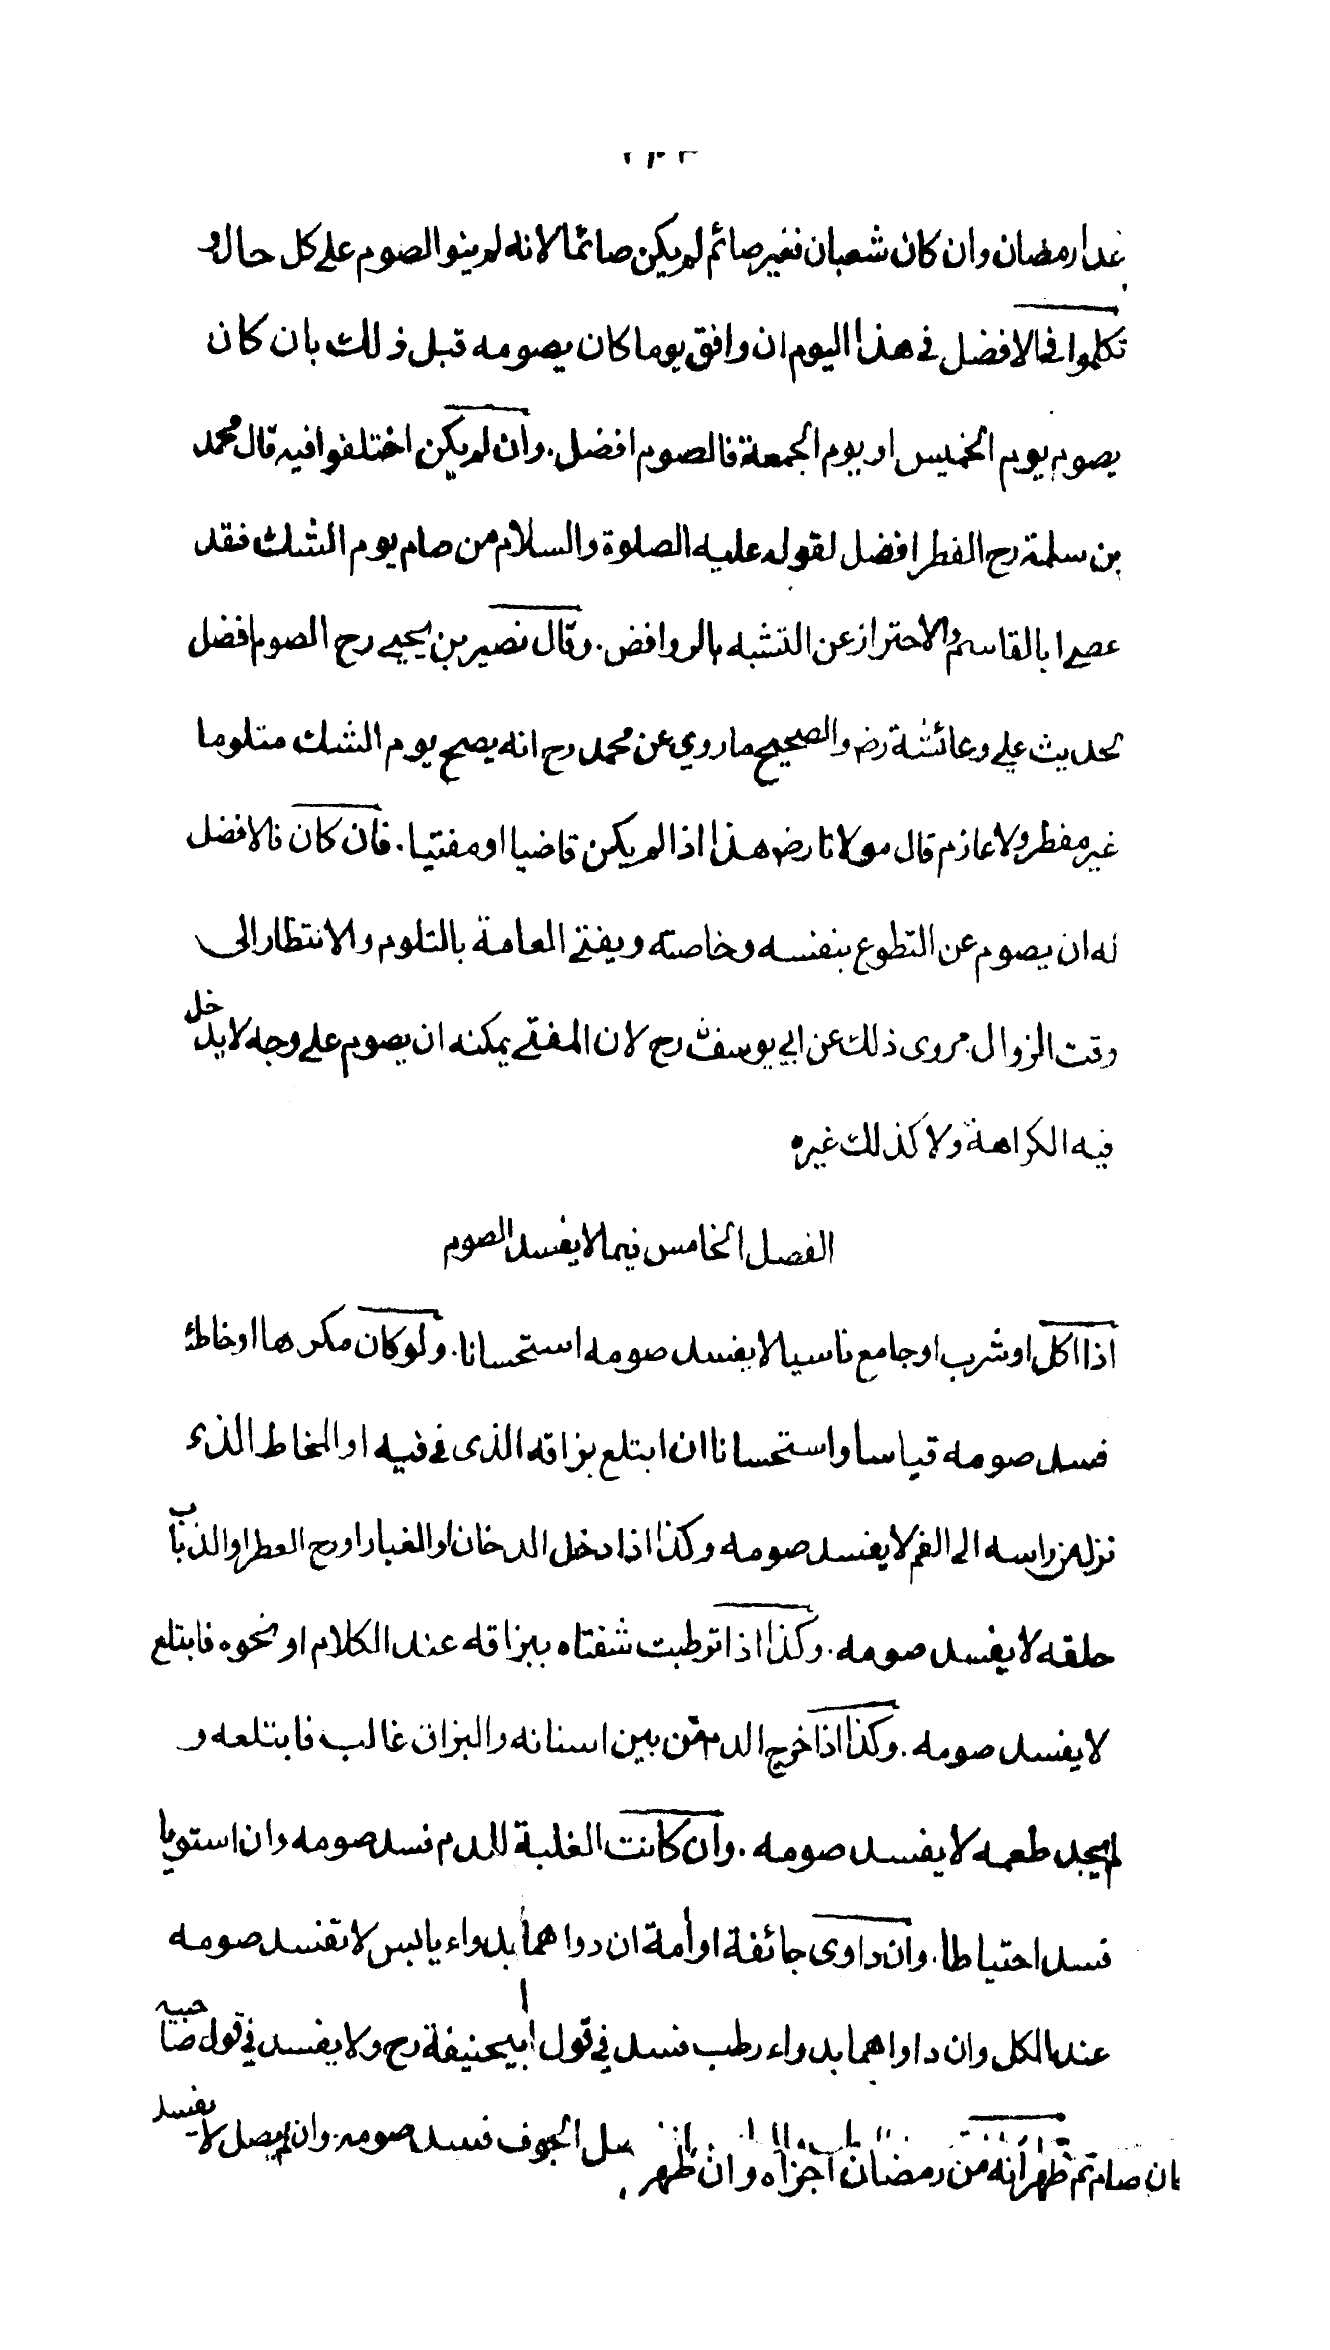 غدا رمضان وان كان شعبان فغير صائم لم يكن صائما لانه لم ينو الصوم على كل حال و
تكلموا في الافضل في هذا اليوم ان وافق يوما كان يصومه قبل ذلك بان كان
يصوم يوم الخميس او يوم الجمعة فالصوم افضل. وان لم يكن اختلفوا فيه قال محمد
بن سلمة رح الفطر افضل لقوله عليه الصلوة والسلام من صام يوم الشك فقد
عصى ابا القاسم والاحتراز عن التشبه بالروافض. وقال نصير بن يحيى رح الصوم افضل
لحديث علي وعائشة رض والصحيح ما روي عن محمد رح انه يصح يوم الشك متلوما
غير مفطر ولا عازم قال مولانا رض هذا اذا لم يكن قاضيا او مفتيا. فان كان فالافضل
له ان يصوم عن التطوع بنفسه وخاصته ويفتى العامة بالتلوم والانتظار الى
وقت الزوال مروى ذلك عن ابي يوسف رح لان المفتى يمكنه ان يصوم على وجه لا يدخل
فيه الكراهة ولا كذلك غيره
الفصل الخامس فيما لا يفسد الصوم
اذا اكل او شرب او جامع ناسيا لا يفسد صومه استحسانا. ولو كان مكرها او خاطئ
فسد صومه قياسا واستحسانا ان ابتلع بزاقه الذى في فيه او المخاط الذى
نزل من راسه الى الفم لا يفسد صومه وكذا اذا دخل الدخان او الغبار او رح العطر او الذباب
حلقه لا يفسد صومه. وكذا اذا ترطبت شفتاه ببزاقه عند الكلام او نحوه فابتلع
لا يفسد صومه. وكذا اذا خرج الدم من بين اسنانه والبزاق غالب فابتلعه و
لم يجد طعمه لا يفسد صومه. وان كانت الغلبة للدم فسد صومه وان استويا
فسد احتياطا. وان داوى جائفة او أمة ان دواهما بدواء يابس لا تفسد صومه
عند الكل وان داواهما بدواء رطب فسد في قول ابيحنيفة رح ولا يفسد في قول صاحبيه
الجوف فسد صومه. وان لم يصل لا يفسد
بان صام ثم ظهر انه من رمضان اجزاه وان ظهر